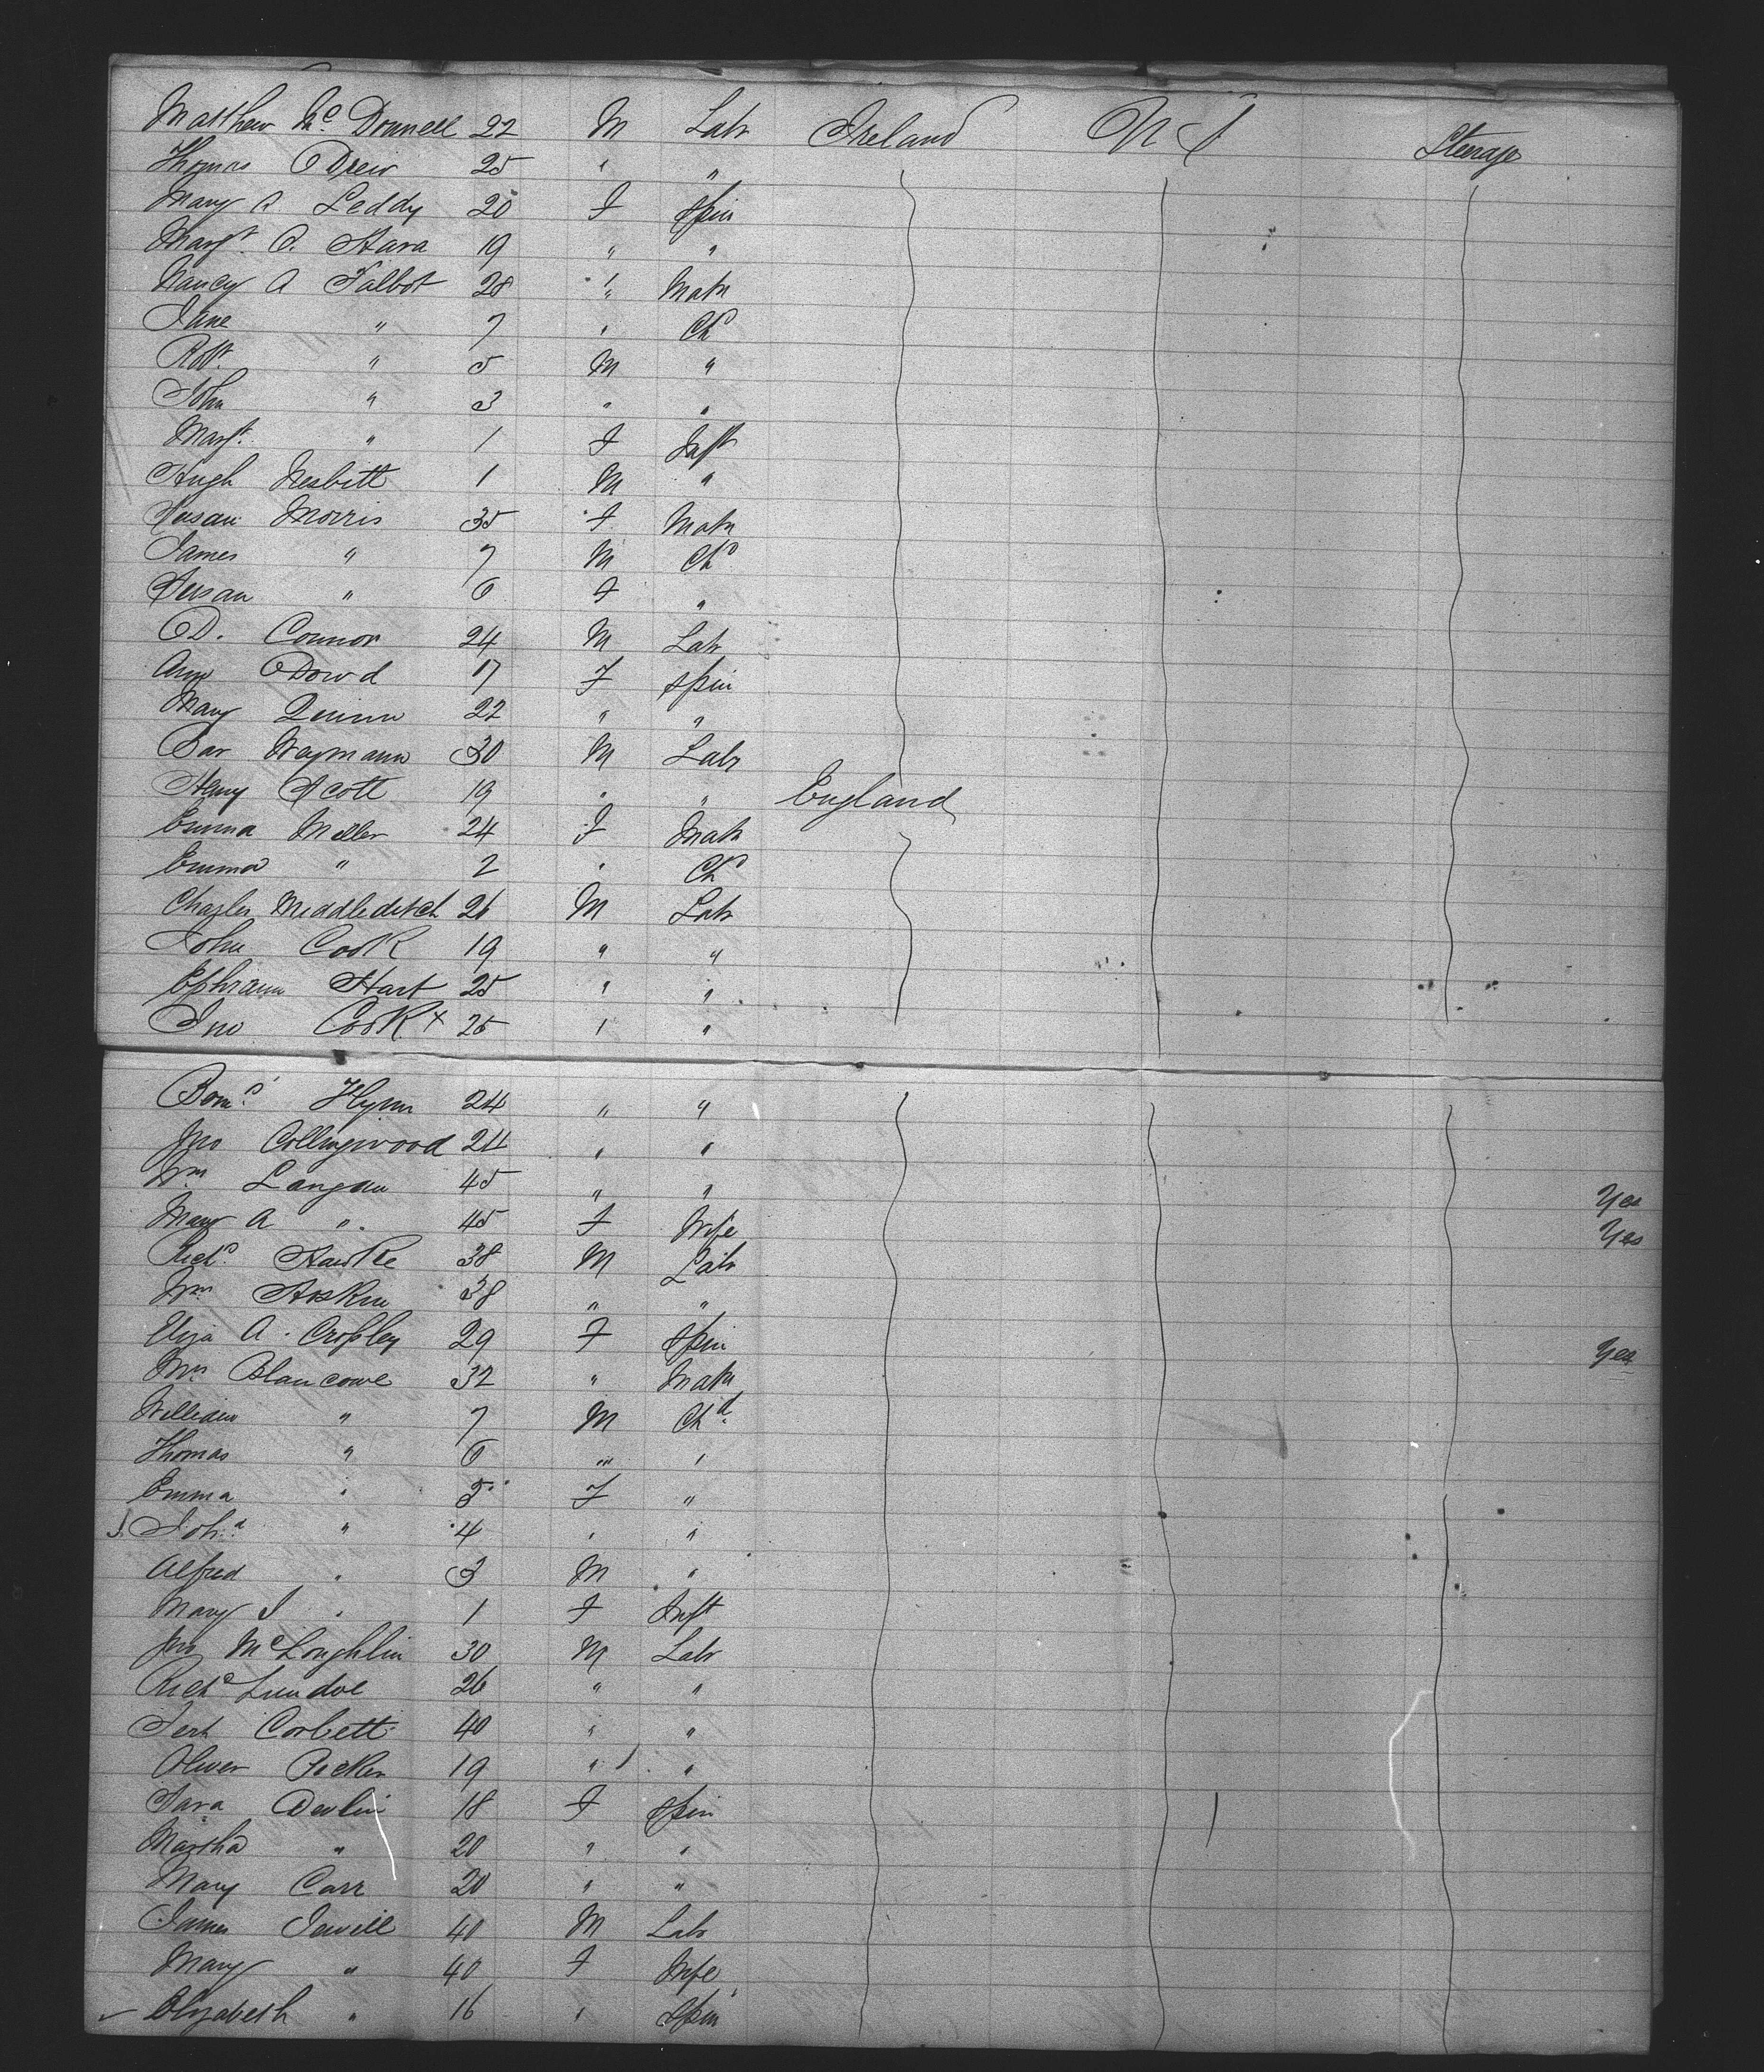 Matthew McDonnell 22 M Labr Ireland N Y Steerage
Thomas ODrew 25 " "
Mary A Leddy 20 F Spin
Margt O. Hara 19 " "
Nancy A Talbot 28 " Matn
Jane " 7 " Chd
Robt. " 5 M "
John " 3 " "
Margt. " 1 F Inft
Hugh Nesbitt 1 M "
Susan Morris 35 F Matn
James " 7 M Chd
Susan " 6 F "
OD. Connor 24 M Labr
Ann ODowd 17 F Spin
Mary Quinn 22 " "
Bar Waymann 30 M Labr
Henry Scott 19 " " England
Emma Miller 24 F Matn
Emma " 2 " Chd
Charles Middleditch 26 M Labr
John Cook 19 " "
Ephraim Hart 25 " "
Jno Cook x 25 " "
Flynn 24 " "
Jno Collingwood 24 " "
Wm Langdu 45 " " Yes
Mary A " 45 F Wife Yes
Richd. Hawke 38 M Labr
Wm Hoskin 38 " "
Eliza A. Cropley 29 F Spin Yes
Mrs Blancowe 32 " Matn
William " 7 M Chd.
Thomas " 6 " "
Emma " 5 F "
" 4 " "
Alfred " 3 M "
Mary J " 1 F Inft
Jno McLoughlin 30 M Labr
Richd 26 " "
Corbett 40 " "
Oliver 19 " "
Sara Devlin 18 F Spin
Martha " 20 " "
Mary Carr 20 " "
James Jewell 40 M Labr
Mary " 40 F Wife
Elizabeth " 16 " Spin